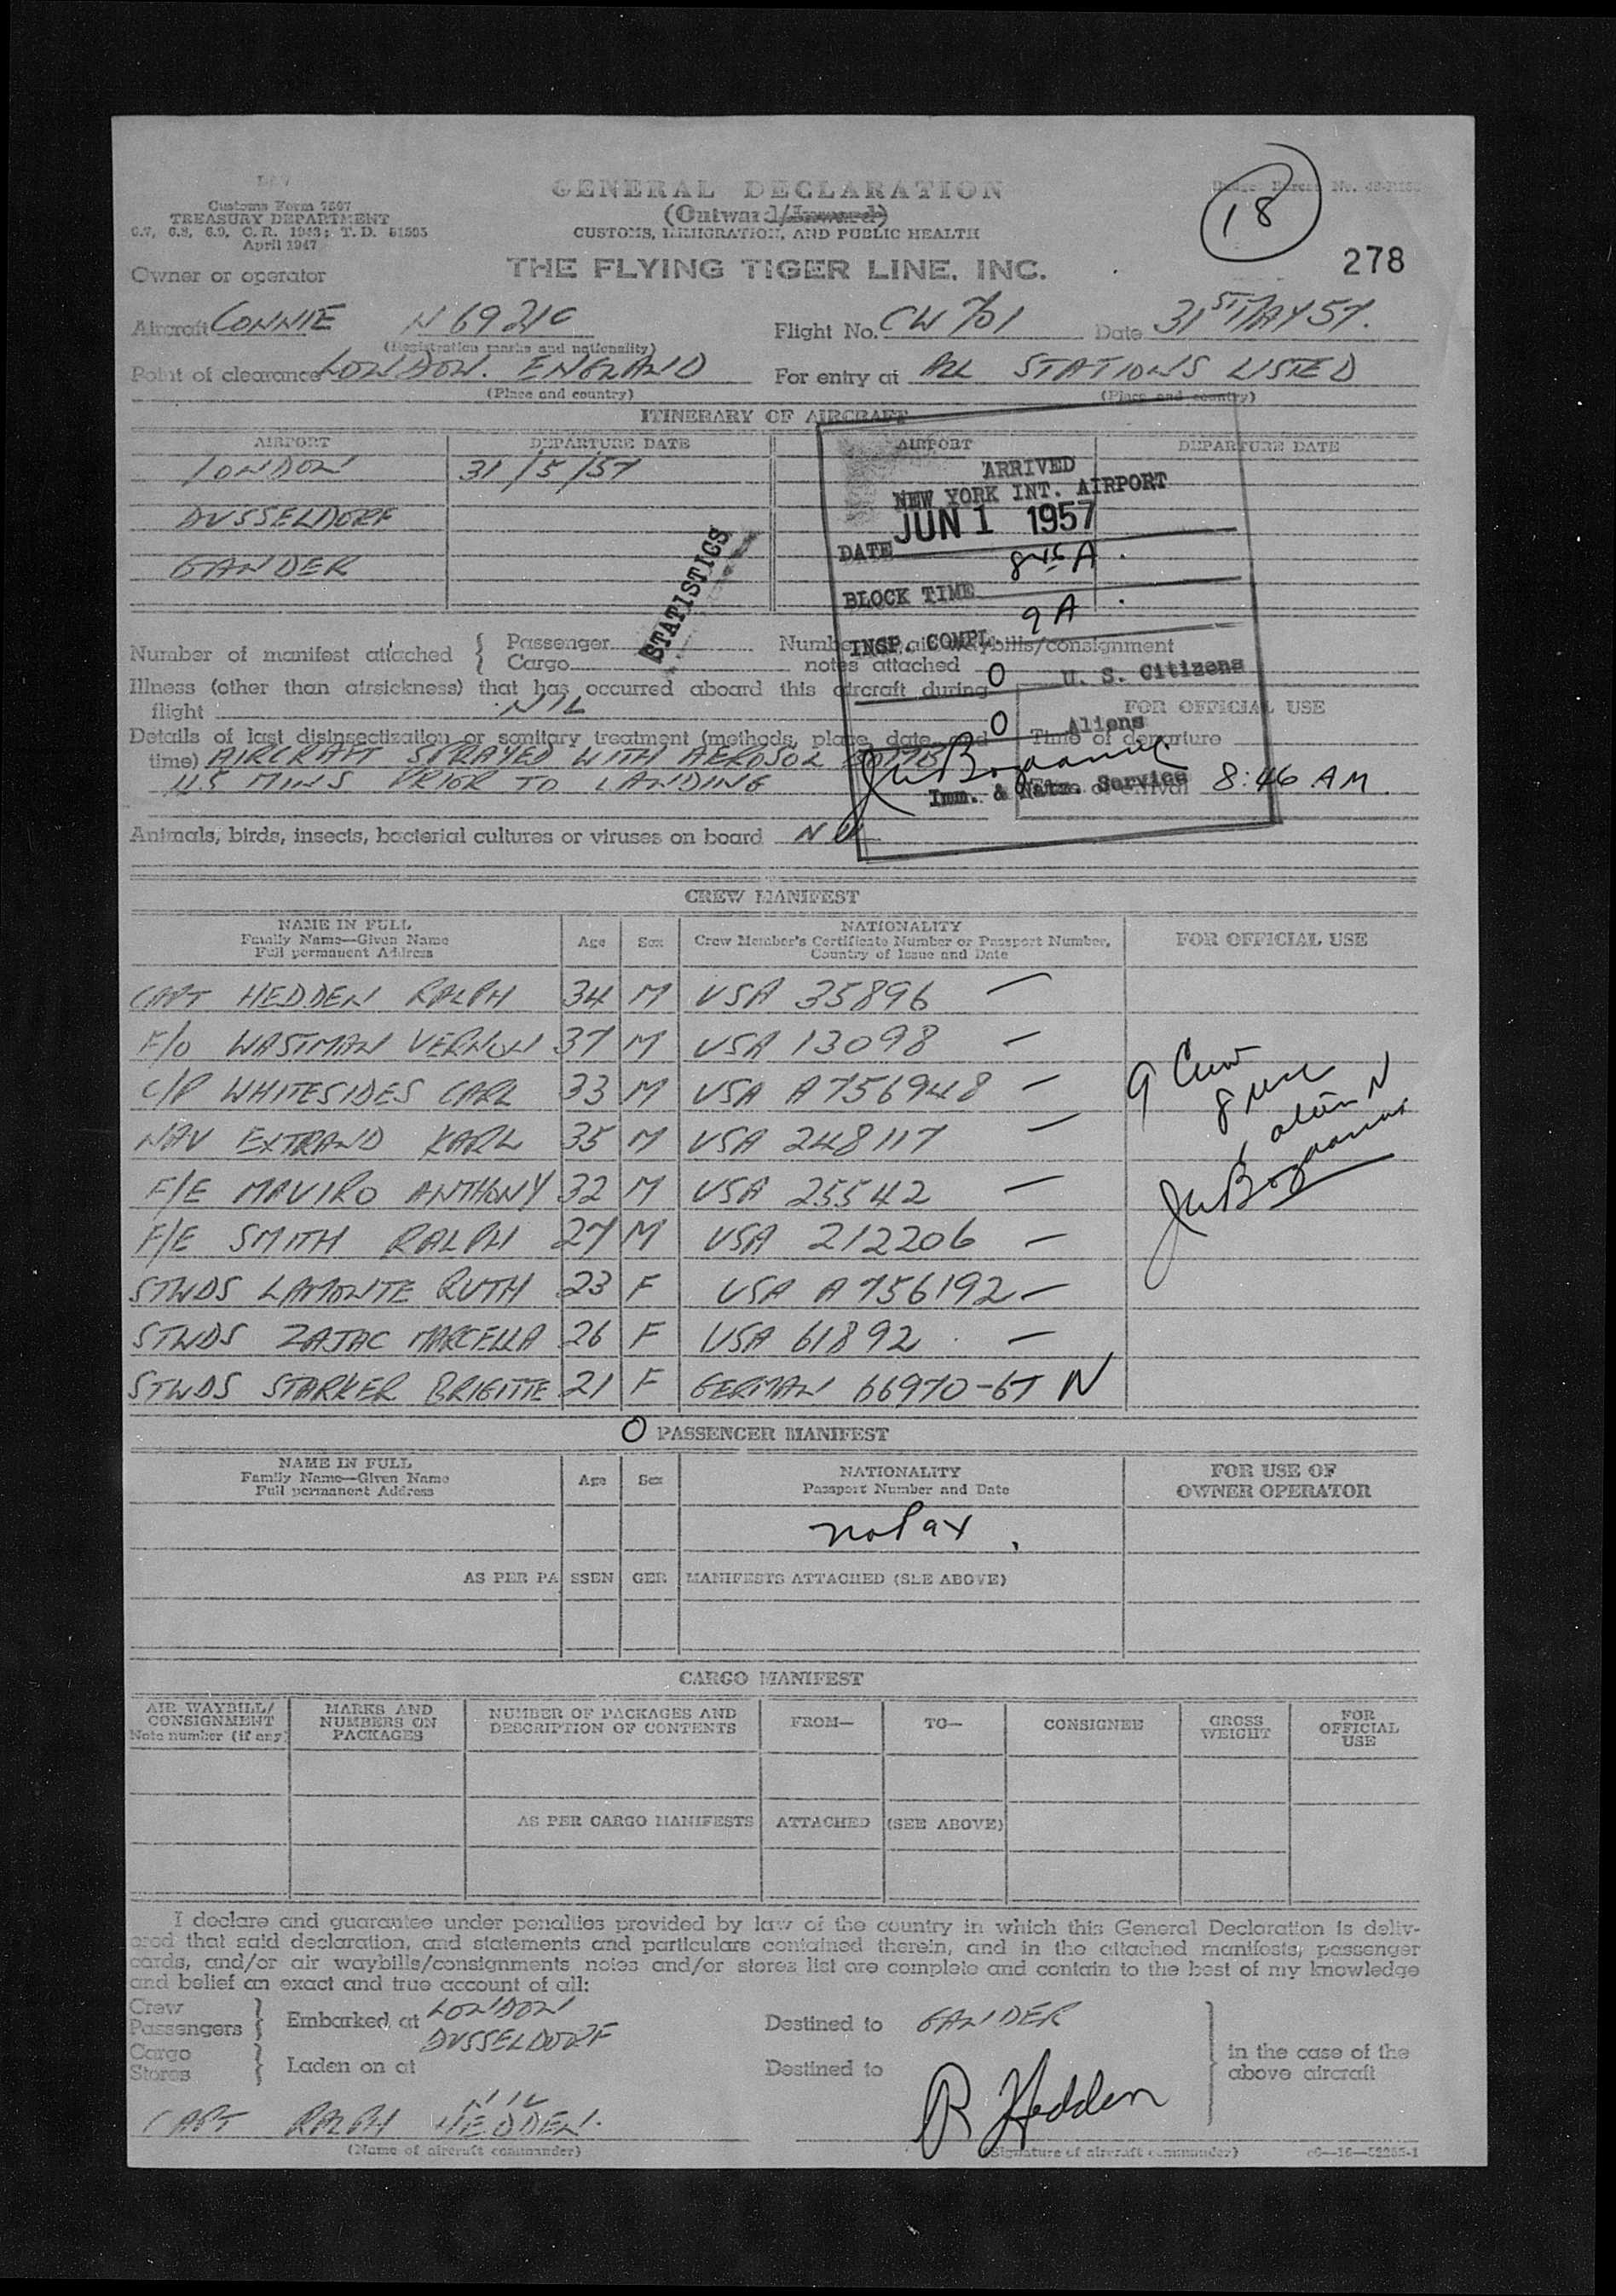 GENERAL DECLARATION
(Outward/Inward)
CUSTOMS, IMMIGRATION, AND PUBLIC HEALTH
Customs Form 7507
TREASURY DEPARTMENT
6.7, 6.8, 6.9, C. R. 1943; T. D. 51505
April 1947
18
278
Owner or operator THE FLYING TIGER LINE, INC.
Aircraft CONNIE N 6921C Flight No. CW 701 Date 31ST MAY 57.
(Registration marks and nationality)
Point of clearance LONDON. ENGLAND For entry at ALL STATIONS LISTED
(Place and country) (Place and country)
ITINERARY OF AIRCRAFT
AIRPORT DEPARTURE DATE AIRPORT DEPARTURE DATE
LONDON 31/5/57
DUSSELDORF
GANDER
STATISTICS
ARRIVED
NEW YORK INT. AIRPORT
DATE JUN 1 1957
BLOCK TIME 845 A.
INSP. COMPL. 9 A.
0 U. S. Citizens
0 Aliens
Imm. & Natz. Service
Number of manifest attached { Passenger
Cargo
Number air waybills/consignment
notes attached
Illness (other than airsickness) that has occurred aboard this aircraft during
flight NIL
FOR OFFICIAL USE
Time of departure
8:46 AM.
Details of last disinsectization or sanitary treatment (methods, place, date, and
time) AIRCRAFT SPRAYED WITH AEROSOL
45 MINS PRIOR TO LANDING
Animals, birds, insects, bacterial cultures or viruses on board NIL
CREW MANIFEST
NAME IN FULL
Family Name—Given Name
Full permanent Address
Age Sex
NATIONALITY
Crew Member's Certificate Number or Passport Number,
Country of Issue and Date
FOR OFFICIAL USE
CAPT HEDDEN RALPH 34 M USA 35896 —
F/O WASTMAN VERNON 37 M USA 13098 —
C/P WHITESIDES CARL 33 M USA A756948 —
NAV EXTRAND KARL 35 M USA 248117 —
F/E MAVIRO ANTHONY 32 M USA 25542 —
F/E SMITH RALPH 27 M USA 212206 —
STWDS LAMONTE RUTH 23 F USA A756192 —
STWDS ZAJAC MARCELLA 26 F USA 61892 —
STWDS STARKER BRIGITTE 21 F GERMAN 66970-67 N
9 Crew
8 usc
1 alien N
0 PASSENGER MANIFEST
NAME IN FULL
Family Name—Given Name
Full permanent Address
Age Sex
NATIONALITY
Passport Number and Date
FOR USE OF
OWNER OPERATOR
no Pax.
AS PER PASSENGER MANIFESTS ATTACHED (SEE ABOVE)
CARGO MANIFEST
AIR WAYBILL/
CONSIGNMENT
Note number (if any)
MARKS AND
NUMBERS ON
PACKAGES
NUMBER OF PACKAGES AND
DESCRIPTION OF CONTENTS
FROM—
TO—
CONSIGNEE
GROSS
WEIGHT
FOR
OFFICIAL
USE
AS PER CARGO MANIFESTS ATTACHED (SEE ABOVE)
I declare and guarantee under penalties provided by law of the country in which this General Declaration is deliv-
ered that said declaration, and statements and particulars contained therein, and in the attached manifests, passenger
cards, and/or air waybills/consignments notes and/or stores list are complete and contain to the best of my knowledge
and belief an exact and true account of all:
Crew
Passengers } Embarked at LONDON
DUSSELDORF
Destined to GANDER
Cargo
Stores } Laden on at NIL
Destined to
in the case of the
above aircraft
CAPT RALPH HEDDEN.
R Hedden
(Name of aircraft commander) (Signature of aircraft commander)